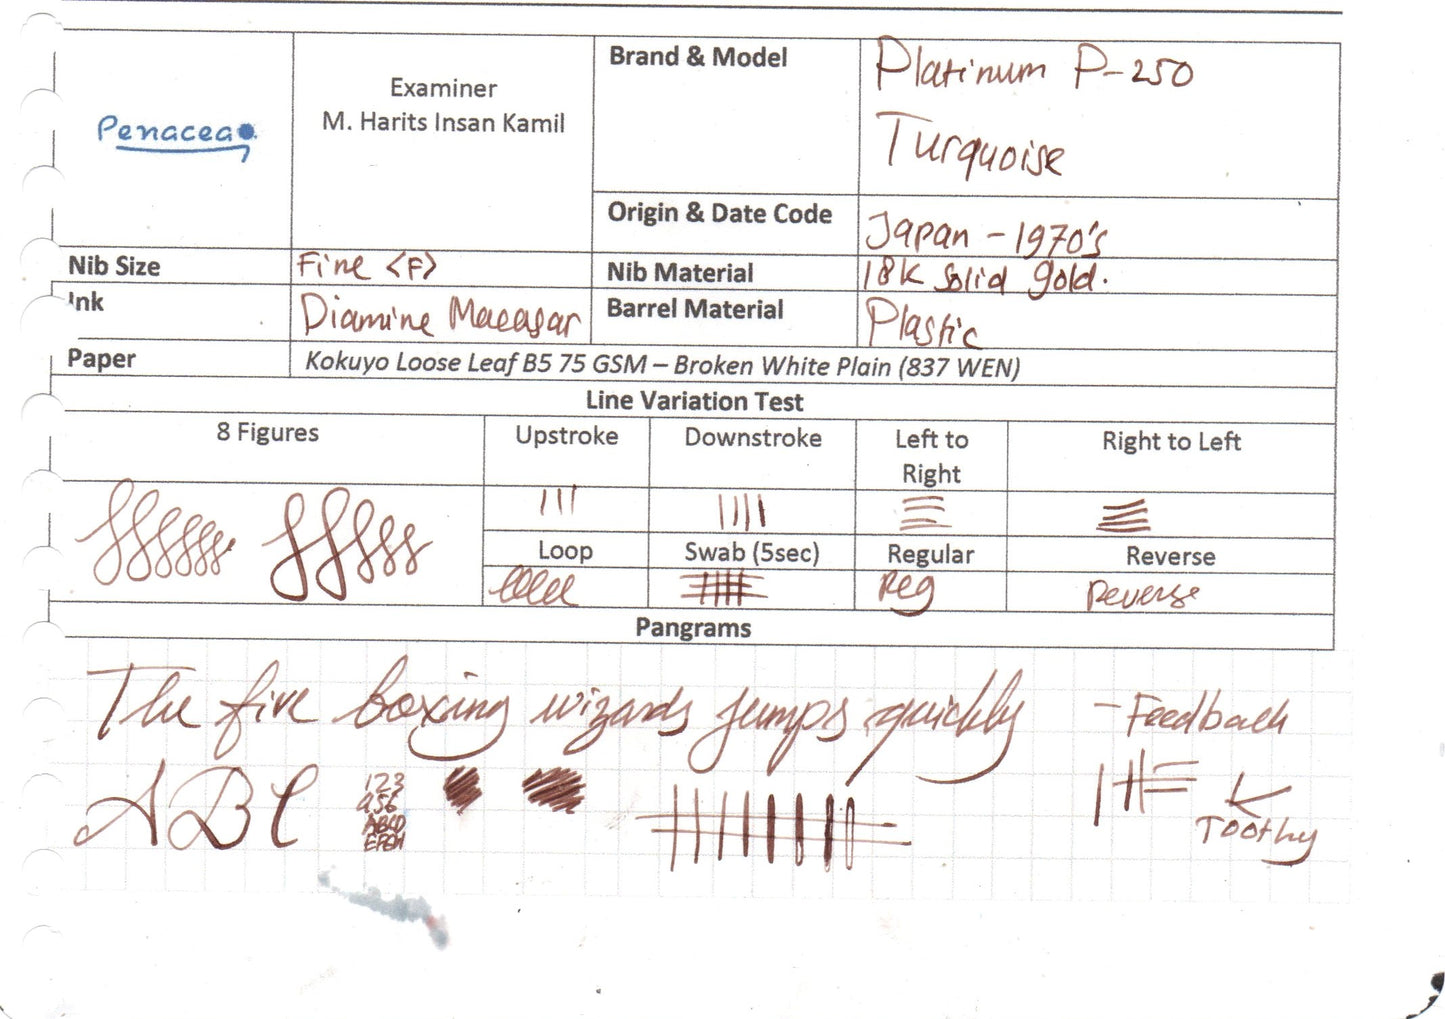 Penacea
Examiner
M. Harits Insan Kamil
Brand & Model
Platinum P-250
Turquoise
Origin & Date Code
Japan - 1970's
Nib Size
Fine <F>
Nib Material
18K Solid gold.
Ink
Diamine Macassar
Barrel Material
Plastic
Paper
Kokuyo Loose Leaf B5 75 GSM – Broken White Plain (837 WEN)
Line Variation Test
8 Figures
Upstroke
Downstroke
Left to
Right
Right to Left
Loop
Swab (5sec)
Regular
Reverse
Reg
Reverse
Pangrams
The five boxing wizards jumps quickly
- Feedback
ABC
123
456
ABCD
EFGH
Toothy